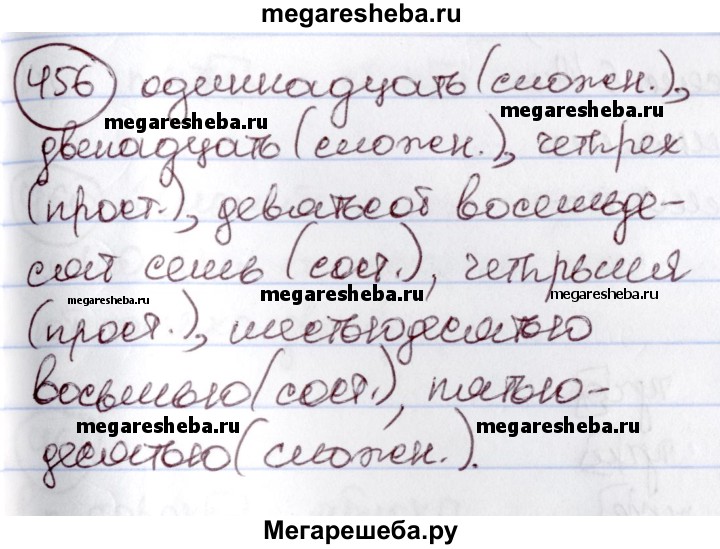 megaresheba.ru
456 одиннадцать (сложен.),
megaresheba.ru
megaresheba.ru
двенадцать (сложен.), четырех
(прост.), девятьсот восемьде-
сят семь (сост.), четырьмя
megaresheba.ru megaresheba.ru megaresheba.ru
(прост.), шестьюдесятью
восьмью (сост.), пятью-
megaresheba.ru megaresheba.ru
десятью (сложен.).
Мегарешеба.ру